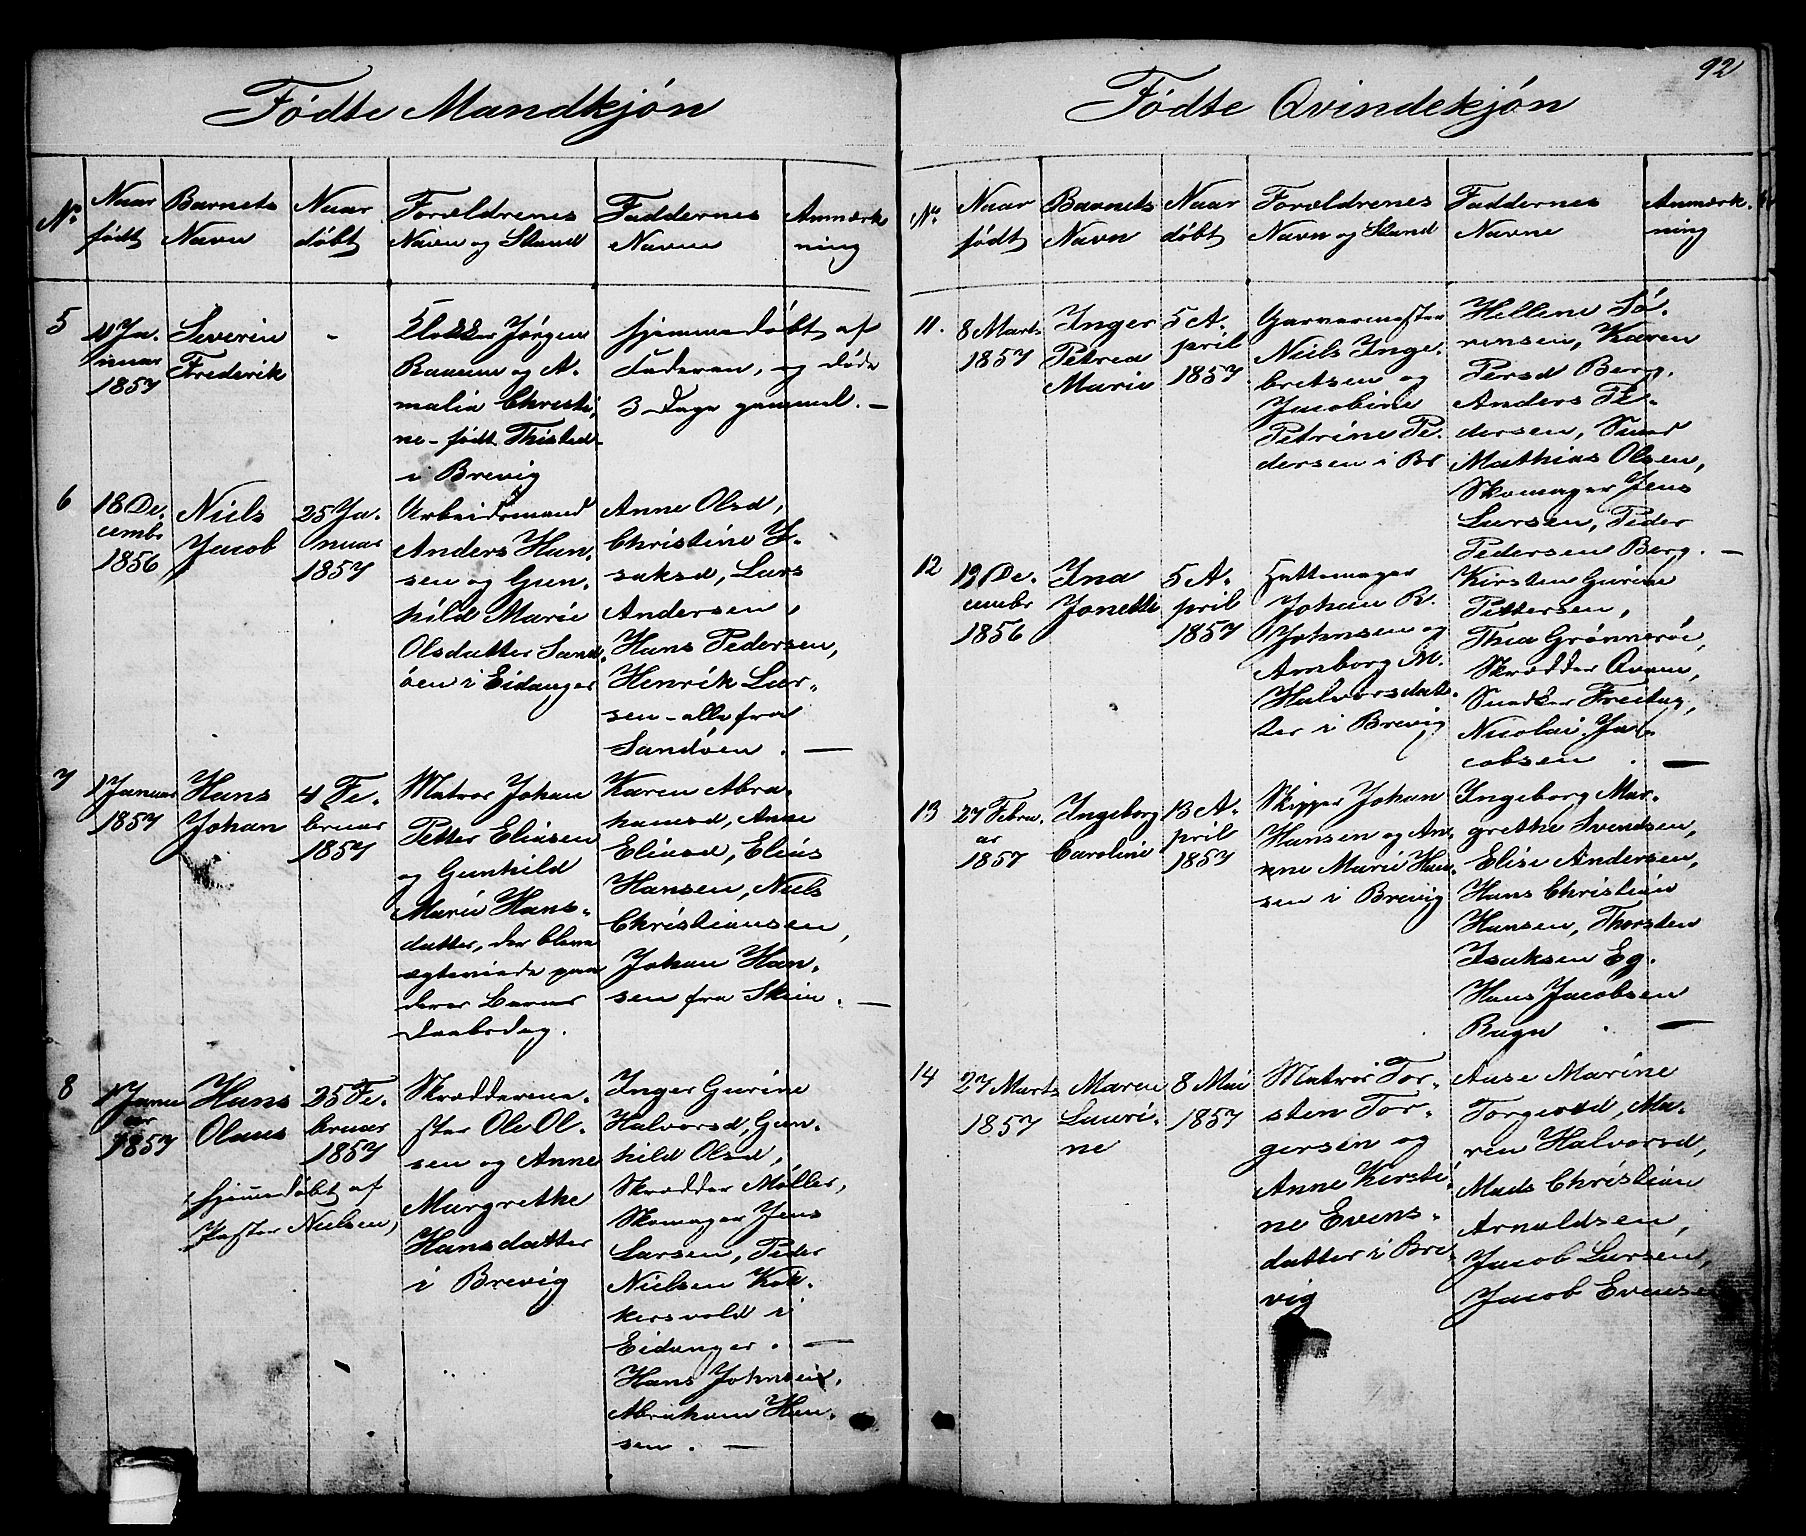 92
Fødte Mandkjøn
No
Naar født
Barnets Navn
Naar døbt
Forældrenes Navn og Stand
Faddernes Navne
Anmærkning
5
4 Ja-
nuar
1857
Severin
Frederik
-
Klokker Jørgen
Baasum og A-
malia Christi-
ne - født Thisted
i Brevig
hjemmedøbt af
Faderen, og døde
3 Dage gammel. -
6
18 De-
cembr
1856
Niels
Jacob
25 Ja-
nuar
1857
Arbeidsmand
Anders Han-
sen og Gun-
hild Marie
Olsdatter Sand-
øen i Eidanger
Anne Olsd,
Christine I-
saksd, Lars
Andersen,
Hans Pedersen,
Henrik Lar-
sen - alle fra
Sandøen. -
7
1 Januar
1857
Hans
Johan
4 Fe-
bruar
1857
Matros Johan
Petter Eliasen
og Gunhild
Marie Hans-
datter, der bleve
ægteviede paa
deres Barns
Daabsdag.
Karen Abra-
hamsd, Anne
Eliasd, Elias
Hansen, Niels
Christiansen,
Johan Han-
sen fra Skien. -
8
1 Janu-
ar
1857
Hans
Olaus
25 Fe-
bruar
1857
hjemmedøbt af
Pastor Nielsen,
Skræddereme-
ster Ole Ol-
sen og Anne
Margrethe
Hansdatter
i Brevig
Inger Gurine
Halvorsd, Gun-
hild Olsd,
Skrædder Møller,
Skomager Jens
Larsen, Peder
Nielsen Kok-
kersvold i
Eidanger. -
Hans Johnsen,
Abraham Han-
sen. -
Fødte Qvindekjøn
No
Naar født
Barnets Navn
Naar døbt
Forældrenes Navn og Stand
Faddernes Navne
Anmærkning
11.
8 Marts
1857
Inger
Petrea
Marie
5 A-
pril
1857
Garvermester
Niels Inge-
bretsen og
Jacobine
Petrine Pe-
dersen i Br
Helline Sø-
rensen, Karen
Persd Berg.
Anders Pe-
dersen,
Mathias Olsen,
Skomager Jens
Larsen, Peder
Pedersen Berg. -
12
19 De-
cembr
1856
Ina
Jonette
5 A-
pril
1857
Hattemager
Johan B.
Johnsen og
Amborg M.
Halvorsdat-
ter i Brevig
Kirsten Gurine
Pettersen,
Thea Grønnerøe,
Skrædder Qvam,
Snedker Freitag,
Nicolai Ja-
cobsen. -
13
27 Febru-
ar
1857
Ingeborg
Caroline
13 A-
pril
1857
Skipper Johan
Hansen og An-
ne Marie Han-
sen i Brevig
Ingeborg Mar-
grethe Svendsen,
Elise Andersen,
Hans Christian
Hansen, Thorsten
Isaksen Eg.
Hans Jacobsen
Bugn. -
14
27 Marts
1857
Maren
Lauri-
ne
8 Mai
1857
Matros Tor-
sten Tor-
gersen og
Anne Kirsti-
ne Evens-
datter i Bre-
vig
Aase Marine
Torgersd, Ma-
ren Halvorsd,
Mads Christian
Arnoldsen,
Jacob Larsen,
Jacob Evense